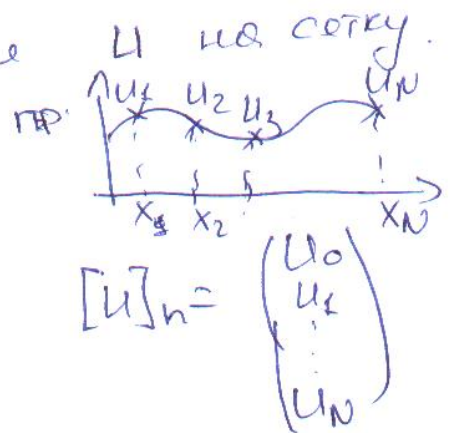 е U на сетку.
пр. U₁ U₂ U₃ U_N
x₁ x₂ x_N
[U]ₕ = (U₀
U₁
⋮
U_N)